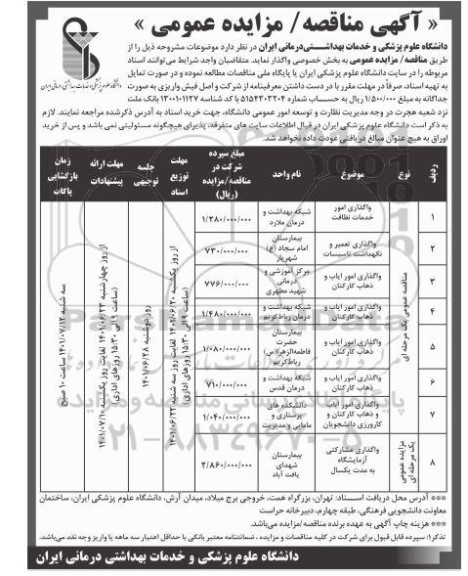 « آگهی مناقصه/ مزایده عمومی »
دانشگاه علوم پزشکی و خدمات بهداشتی درمانی ایران
دانشگاه علوم پزشکی و خدمات بهداشتــی‌درمانی ایران در نظر دارد موضوعات مشروحه ذیل را از
طریق مناقصه/ مزایده عمومی به بخش خصوصی واگذار نماید. متقاضیان واجد شرایط می‌توانند اسناد
مربوطه را در سایت دانشگاه علوم پزشکی ایران یا پایگاه ملی مناقصات مطالعه نموده و در صورت تمایل
به تهیه اسناد، صرفاً در مهلت مقرر با در دست داشتن معرفینامه از شرکت و اصل فیش واریزی به صورت
جداگانه به مبلغ ۱/۵۰۰/۰۰۰ ریال به حســاب شماره ۵۱۵۴۳۰۳۲۰۴ با کد شناسه ۱۳۰۰۱۰۱۱۲۷ بانک ملت
نزد شعبه هجرت در وجه مدیریت نظارت و توسعه امور عمومی دانشگاه، جهت خرید اسناد به آدرس ذکرشده مراجعه نمایند. لازم
به ذکر است دانشگاه علوم پزشکی ایران در قبال اطلاعات سایت های متفرقه، پذیرای هیچگونه مسئولیتی نمی باشد و پس از خرید
اوراق به هیچ عنوان مبالغ دریافتی عودت داده نخواهد شد.
ردیف نوع موضوع نام واحد مبلغ سپرده شرکت در مناقصه/مزایده (ریال) مهلت توزیع اسناد جلسه توجیهی مهلت ارائه پیشنهادات زمان بازگشایی پاکات
۱ واگذاری امور خدمات نظافت شبکه بهداشت و درمان ملارد ۱/۲۸۰/۰۰۰/۰۰۰
۲ واگذاری تعمیر و نگهداشت تاسیسات بیمارستان امام سجاد (ع) شهریار ۷۳۰/۰۰۰/۰۰۰
۳ واگذاری امور ایاب و ذهاب کارکنان مرکز آموزشی و درمانی شهید مطهری ۷۷۶/۰۰۰/۰۰۰
۴ واگذاری امور ایاب و ذهاب کارکنان شبکه بهداشت و درمان رباط کریم ۱/۴۸۰/۰۰۰/۰۰۰
۵ واگذاری امور ایاب و ذهاب کارکنان بیمارستان حضرت فاطمه‌الزهرا(س) رباط کریم ۱/۰۸۰/۰۰۰/۰۰۰
۶ واگذاری امور ایاب و ذهاب کارکنان شبکه بهداشت و درمان قدس ۷۱۰/۰۰۰/۰۰۰
۷ واگذاری امور ایاب و ذهاب کارکنان و کارورزی دانشجویان دانشکده های پرستاری و مامایی و مدیریت ۱/۰۴۰/۰۰۰/۰۰۰
۸ واگذاری مشارکتی آزمایشگاه به مدت یکسال بیمارستان شهدای یافت آباد ۲/۸۶۰/۰۰۰/۰۰۰
مناقصه عمومی یک مرحله ای
مزایده عمومی یک مرحله ای
از روز یکشنبه ۱۴۰۱/۰۶/۲۰ لغایت روز سه شنبه ۱۴۰۱/۰۶/۲۲
روز دوشنبه ۱۴۰۱/۰۶/۲۸
از روز چهارشنبه ۱۴۰۱/۰۶/۲۳ لغایت روز یکشنبه ۱۴۰۱/۰۷/۱۰
سه شنبه ۱۴۰۱/۰۷/۱۲ ساعت ۱۰ صبح
ParsNamad Data
۰۲۱-۸۸۳۴۹۶۷۰-۵
*** آدرس محل دریافت اســناد: تهران، بزرگراه همت، خروجی برج میلاد، میدان آرش، دانشگاه علوم پزشکی ایران، ساختمان
معاونت دانشجویی فرهنگی، طبقه چهارم، دبیرخانه حراست
*** هزینه چاپ آگهی به عهده برنده مناقصه/مزایده می‌باشد.
تذکر۱: سپرده قابل قبول برای شرکت در کلیه مناقصات و مزایده ، ضمانتنامه معتبر بانکی با حداقل اعتبار سه ماهه یا واریز وجه نقد می‌باشد.
دانشگاه علوم پزشکی و خدمات بهداشتی درمانی ایران